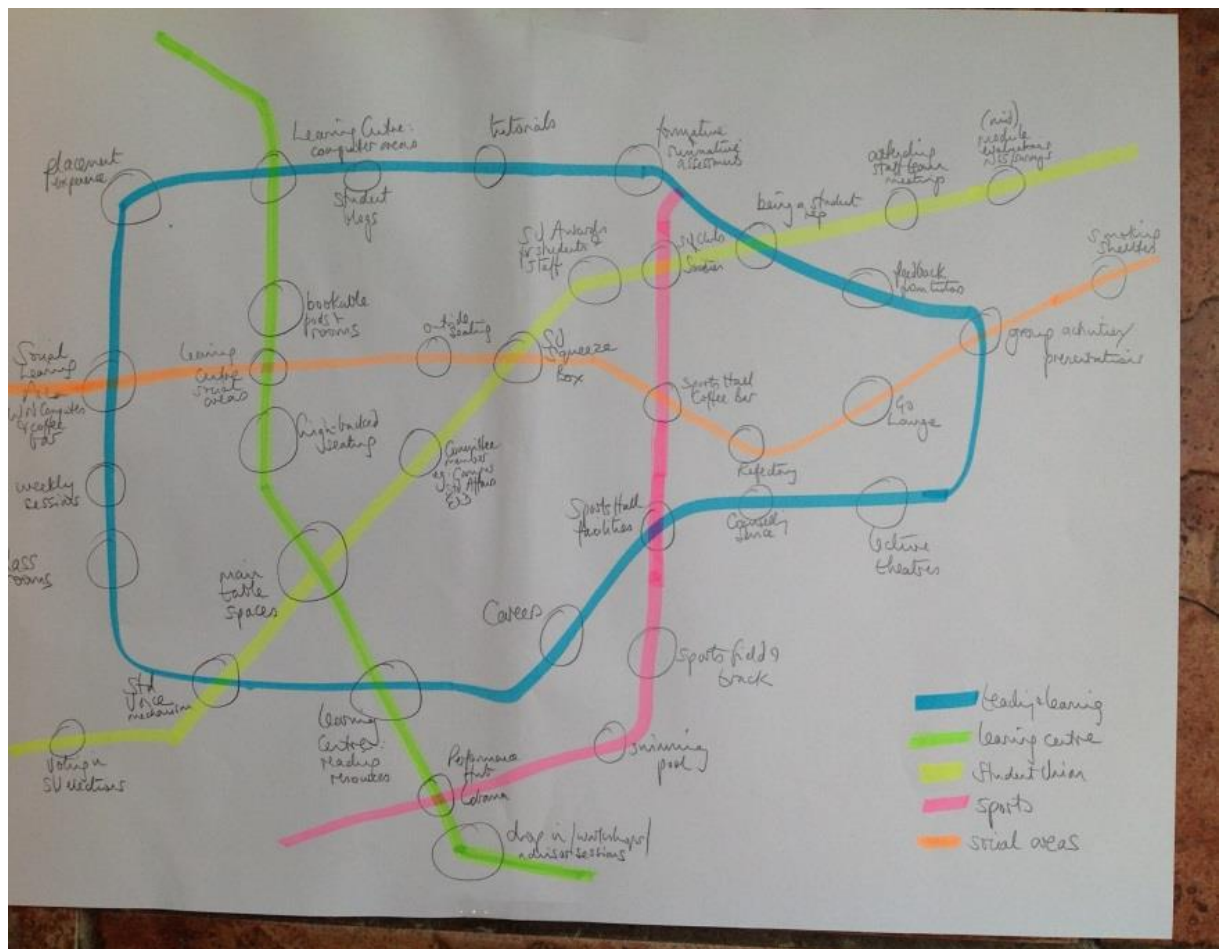 placement
experience
Learning Centre:
computer areas
student
blogs
tutorials
formative
summative
assessment
attending
staff team
meetings
(mid)
module
evaluations
being a student
rep
SU Awards
for students
staff
SU Clubs
Smoking
Shelter
feedback
from tutors
bookable
pods +
rooms
outside
seating
SU
Squeeze
Box
group activities/
presentations
Social
Learning
computers
& coffee
bar
learning
centre
social
areas
Sports Hall
Coffee Bar
Go
Lounge
high-backed
seating
Committee
member
eg. Campus
Affairs
Refectory
weekly
sessions
Sports Hall
facilities
lecture
theatres
ass
rooms
main
table
spaces
Careers
sports field &
track
Std
Voice
mechanism
learning
centre:
reading
resources
Voting in
SU elections
Performance
Hub
drama
swimming
pool
drop in/workshops/
advisor sessions
learning centre
Student Union
sports
social areas